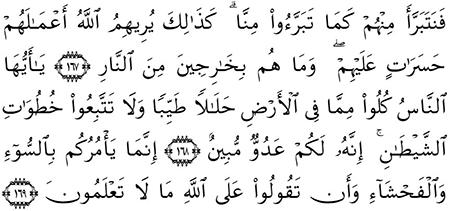 فَنَتَبَرَّأَ مِنْهُمْ كَمَا تَبَرَّءُوا۟ مِنَّا ۗ كَذَٰلِكَ يُرِيهِمُ ٱللَّهُ أَعْمَـٰلَهُمْ
حَسَرَٰتٍ عَلَيْهِمْ ۖ وَمَا هُم بِخَـٰرِجِينَ مِنَ ٱلنَّارِ ١٦٧ يَـٰٓأَيُّهَا
ٱلنَّاسُ كُلُوا۟ مِمَّا فِى ٱلْأَرْضِ حَلَـٰلًا طَيِّبًا وَلَا تَتَّبِعُوا۟ خُطُوَٰتِ
ٱلشَّيْطَـٰنِ ۚ إِنَّهُۥ لَكُمْ عَدُوٌّ مُّبِينٌ ١٦٨ إِنَّمَا يَأْمُرُكُم بِٱلسُّوٓءِ
وَٱلْفَحْشَآءِ وَأَن تَقُولُوا۟ عَلَى ٱللَّهِ مَا لَا تَعْلَمُونَ ١٦٩